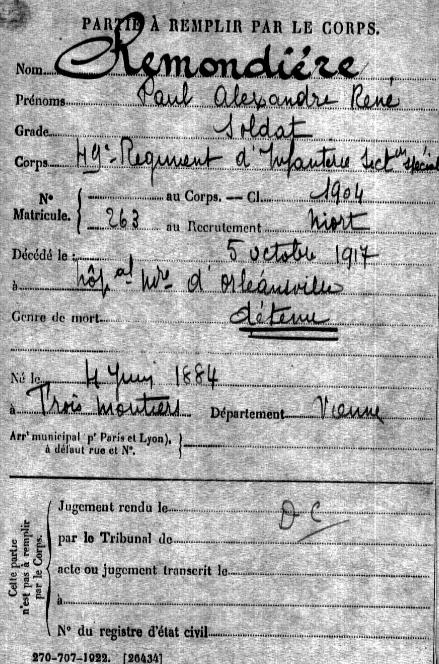 PARTIE À REMPLIR PAR LE CORPS.
Nom Remondière
Prénoms Paul Alexandre René
Grade Soldat
Corps 49e Régiment d'Infanterie Secton spécial
No Matricule.
au Corps. — Cl. 1904
263 au Recrutement Niort
Décédé le : 5 octobre 1917
à hôpal Mre d'Orléansville
Genre de mort détenu
Né le 4 Juin 1884
à Trois Moutiers Département Vienne
Arrt municipal (pr Paris et Lyon),
à défaut rue et No.
Cette partie n'est pas à remplir par le Corps.
Jugement rendu le DC
par le Tribunal de
acte ou jugement transcrit le
à
No du registre d'état civil
270-707-1922. [26434]